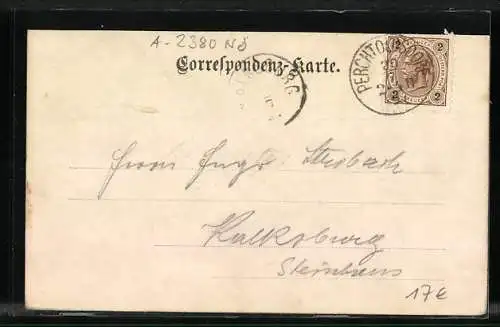 A-2380 Nö
Correspondenz-Karte.
PERCHTO
2 2
Herrn Hugo Strobach
Kalksburg
Steinhaus
17€